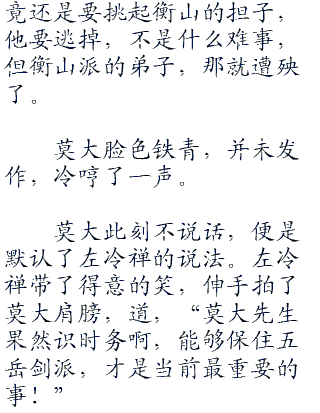 竟还是要挑起衡山的担子，
他要逃掉，不是什么难事，
但衡山派的弟子，那就遭殃
了。
莫大脸色铁青，并未发
作，冷哼了一声。
莫大此刻不说话，便是
默认了左冷禅的说法。左冷
禅带了得意的笑，伸手拍了
莫大肩膀，道，“莫大先生
果然识时务啊，能够保住五
岳剑派，才是当前最重要的
事！”